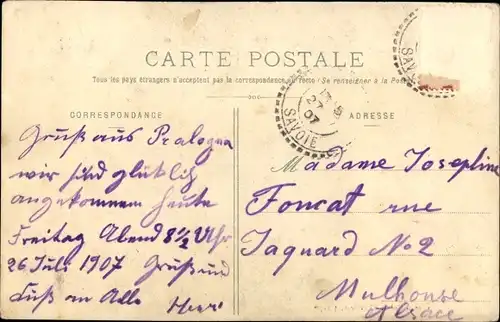 CARTE POSTALE
Tous les pays étrangers n'acceptent pas la correspondance au recto (Se renseigner à la Poste)
CORRESPONDANCE
Gruß aus Pralogna
wir sind glüklich
angekommen heute
Freitag Abend 8½ Uhr
26 Juli 1907 Gruß und
Kuß an Alle
ADRESSE
Madame Josephine
Foncat rue
Jaquard No 2
Mulhouse
Alsace
27
07
SAVOIE
SAVOIE